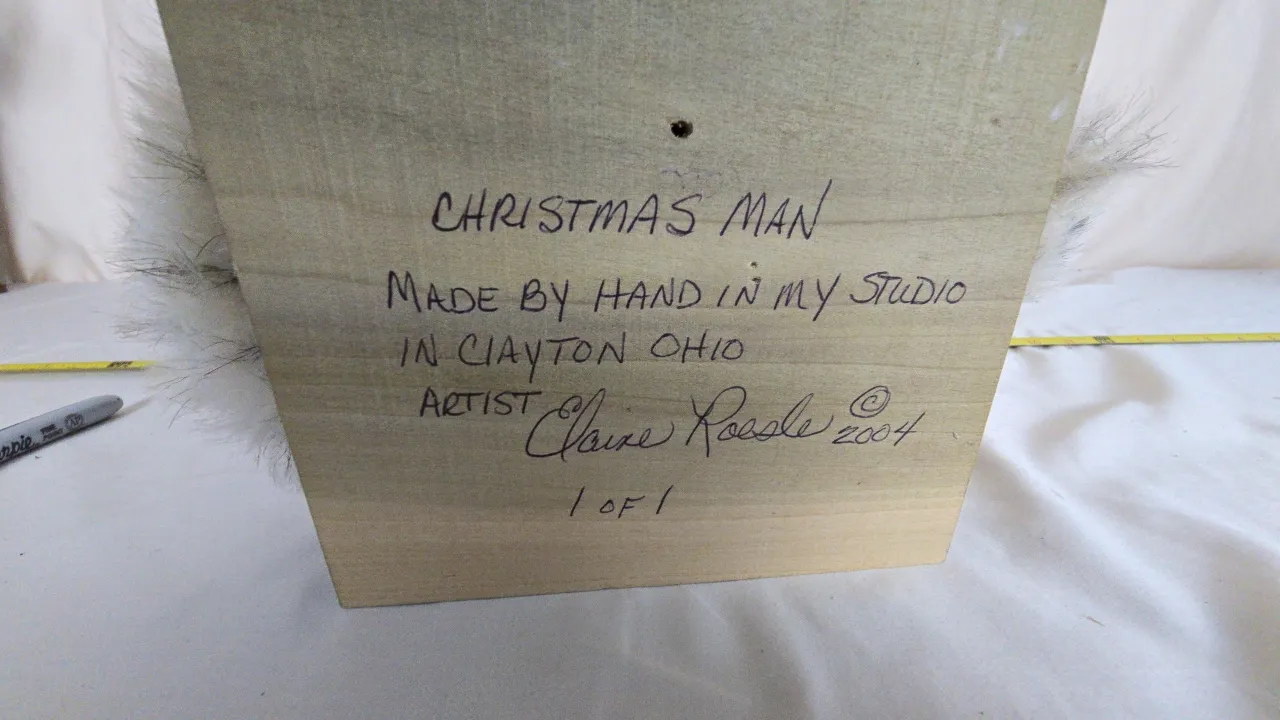 CHRISTMAS MAN
MADE BY HAND IN MY STUDIO
IN CLAYTON OHIO
ARTIST Elaine Roesle © 2004
1 OF 1